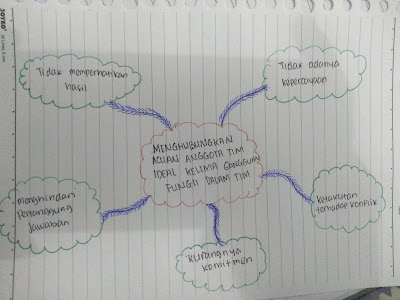 JOYKO
Tidak memperhatikan
hasil
Tidak adanya
kepercayaan
MENGHUBUNGKAN
ANGGOTA TIM
IDEAL KELIMA GANGGUAN
FUNGSI DALAM TIM
menghindari
Pertanggung
Jawaban
ketakutan
terhadap konflik
kurangnya
komitmen